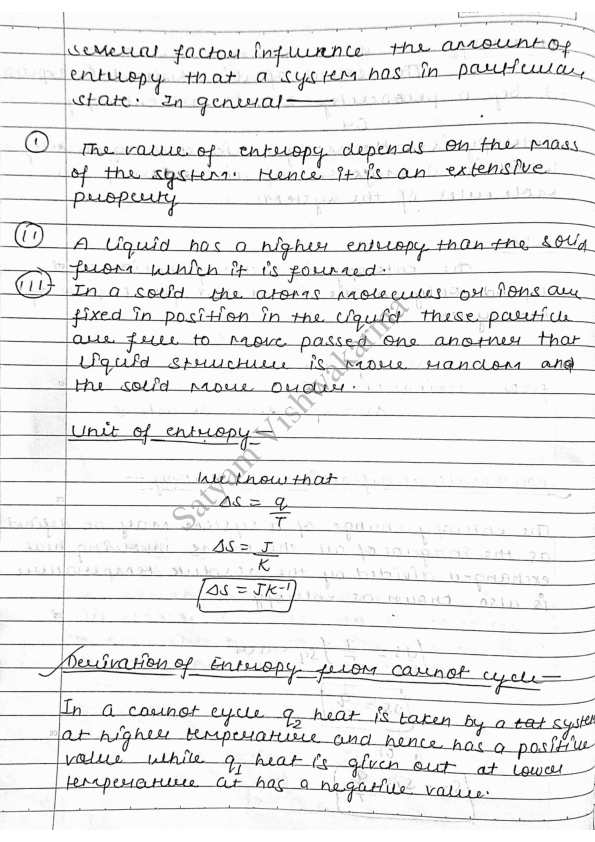 several factor influence the amount of
entropy that a system has in particular
state. In general —
(i) The value of entropy depends on the mass
of the system. Hence it is an extensive
property
(ii) A liquid has a higher entropy than the solid
from which it is formed.
(iii) In a solid the atoms molecules or ions are
fixed in position in the liquid these particle
are free to move passed one another that
liquid structure is more random and
the solid more order.
Unit of entropy —
We know that
ΔS = q/T
ΔS = J/K
ΔS = JK⁻¹
Derivation of Entropy from carnot cycle —
In a carnot cycle q₂ heat is taken by a system
at higher temperature and hence has a positive
value while q₁ heat is given out at lower
temperature at has a negative value.
Satyam Vishwakarma